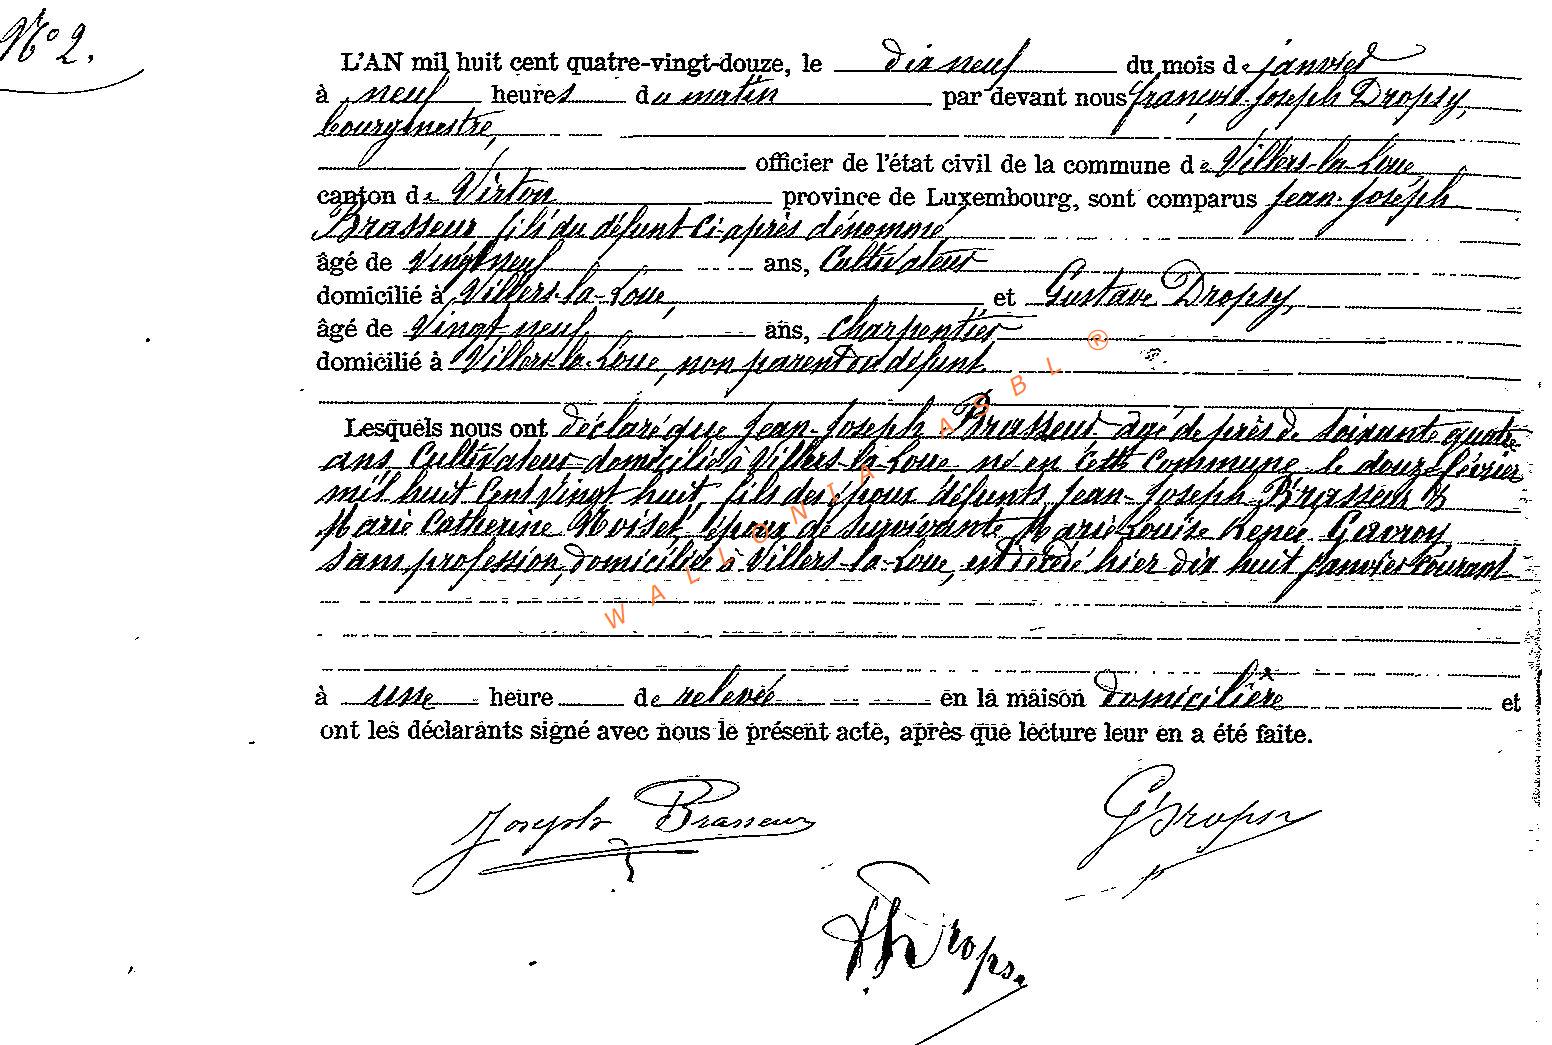 N° 2.
L'AN mil huit cent quatre-vingt-douze, le dix neuf du mois de janvier
à neuf heures du matin par devant nous françois Joseph Dropsy,
bourgmestre,
officier de l'état civil de la commune de Villers-la-Loue
canton de Virton province de Luxembourg, sont comparus Jean-Joseph
Brasseur fils du défunt ci-après dénommé
âgé de Vingt neuf ans, Cultivateur
domicilié à Villers-la-Loue, et Gustave Dropsy,
âgé de Vingt neuf ans, charpentier
domicilié à Villers-la-Loue, non parent du défunt
Lesquels nous ont déclaré que Jean-Joseph Brasseur, agé de près de soixante quatre
ans Cultivateur domicilié à Villers-la-Loue né en cette Commune le douze février
mil huit Cent Vingt huit, fils des époux défunts Jean-Joseph Brasseur &
Marie Catherine Noiset, époux de survivante Marie Louise Renée Gavroy
sans profession, domiciliée à Villers-la-Loue, est décédé hier dix huit Janvier Courant
à une heure de relevée en la maison domicilière et
ont les déclarants signé avec nous le présent acte, après que lecture leur en a été faite.
Joseph Brasseur
GDropsy
Dropsy
WALLONIA ASBL ®